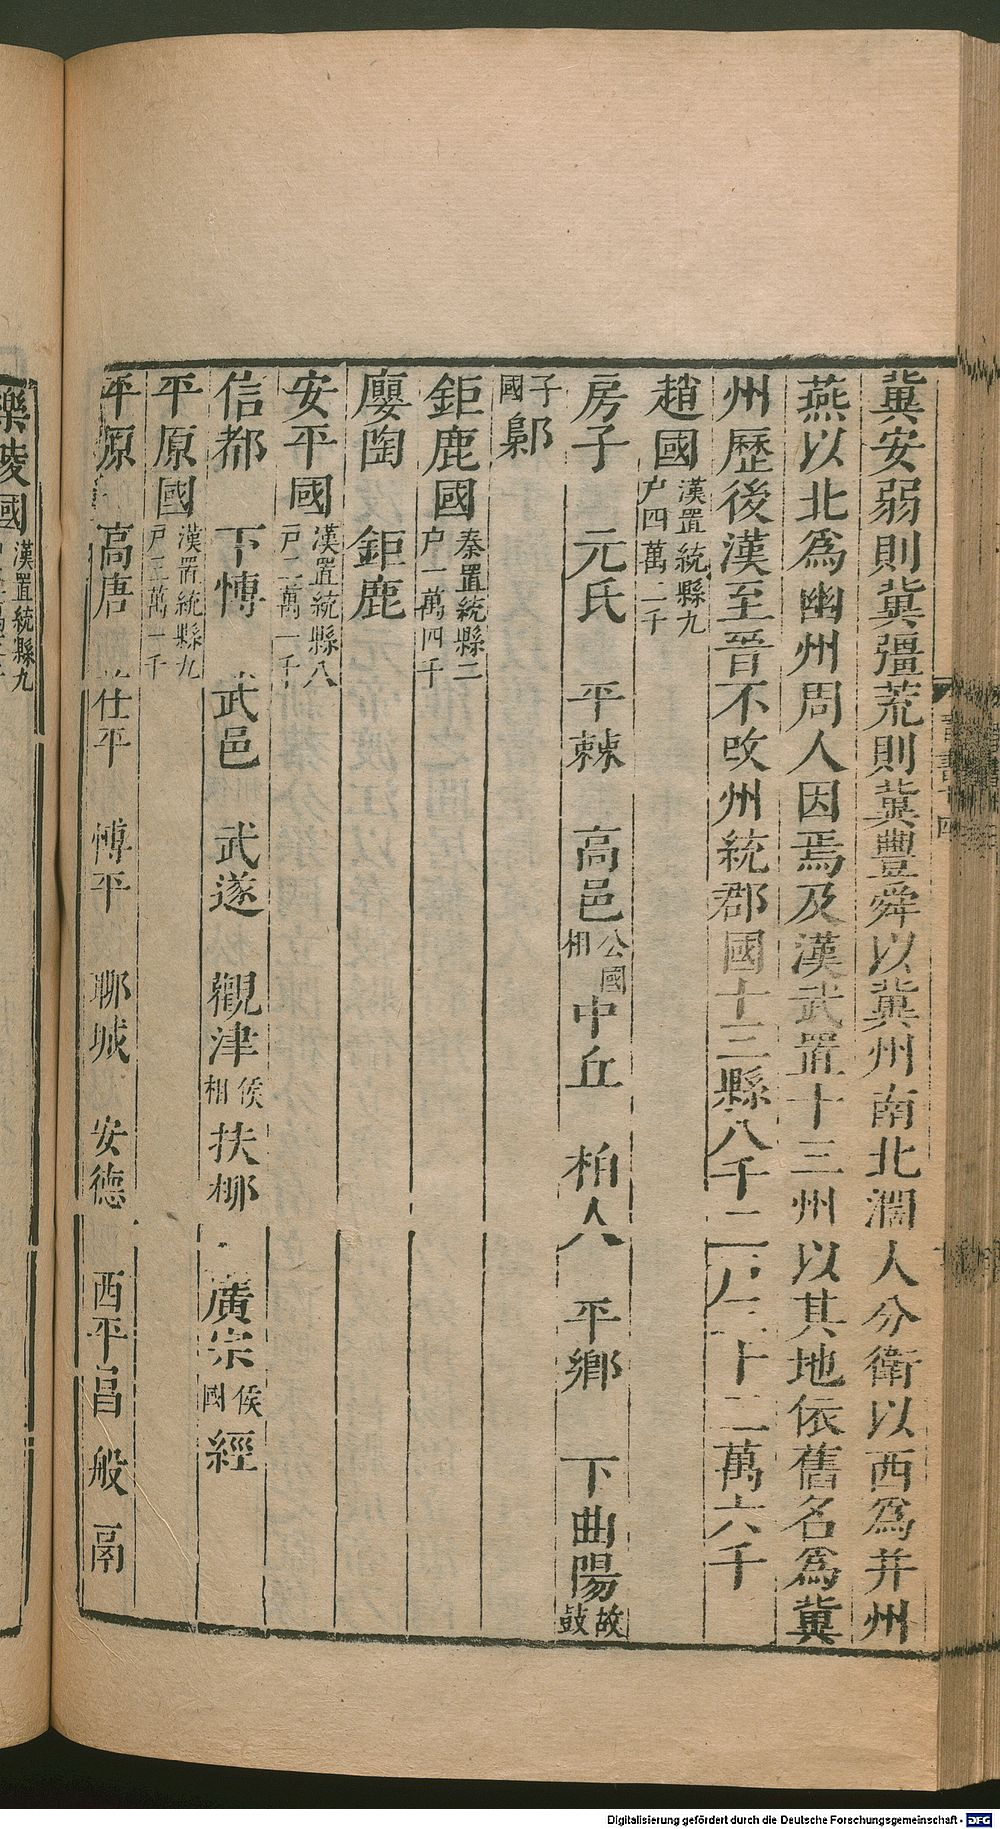 冀安弱則冀彊荒則冀豐舜以冀州南北濶人分衛以西爲并州
燕以北爲幽州周人因焉及漢武置十三州以其地依舊名爲冀
州歷後漢至晉不改州統郡國十三縣八十二戶三十二萬六千
趙國漢置統縣九戶四萬二千
房子 元氏 平棘 高邑公國相 中丘 柏人 平鄉 下曲陽故鼓
子國 鄡
鉅鹿國秦置統縣二戶一萬四千
廮陶 鉅鹿
安平國漢置統縣八戶二萬一千
信都 下博 武邑 武遂 觀津侯相 扶柳 廣宗侯國 經
平原國漢置統縣九戶三萬一千
平原 高唐 茌平 博平 聊城 安德 西平昌 般 鬲
樂陵國漢置統縣九
晉書十四
Digitalisierung gefördert durch die Deutsche Forschungsgemeinschaft - DFG